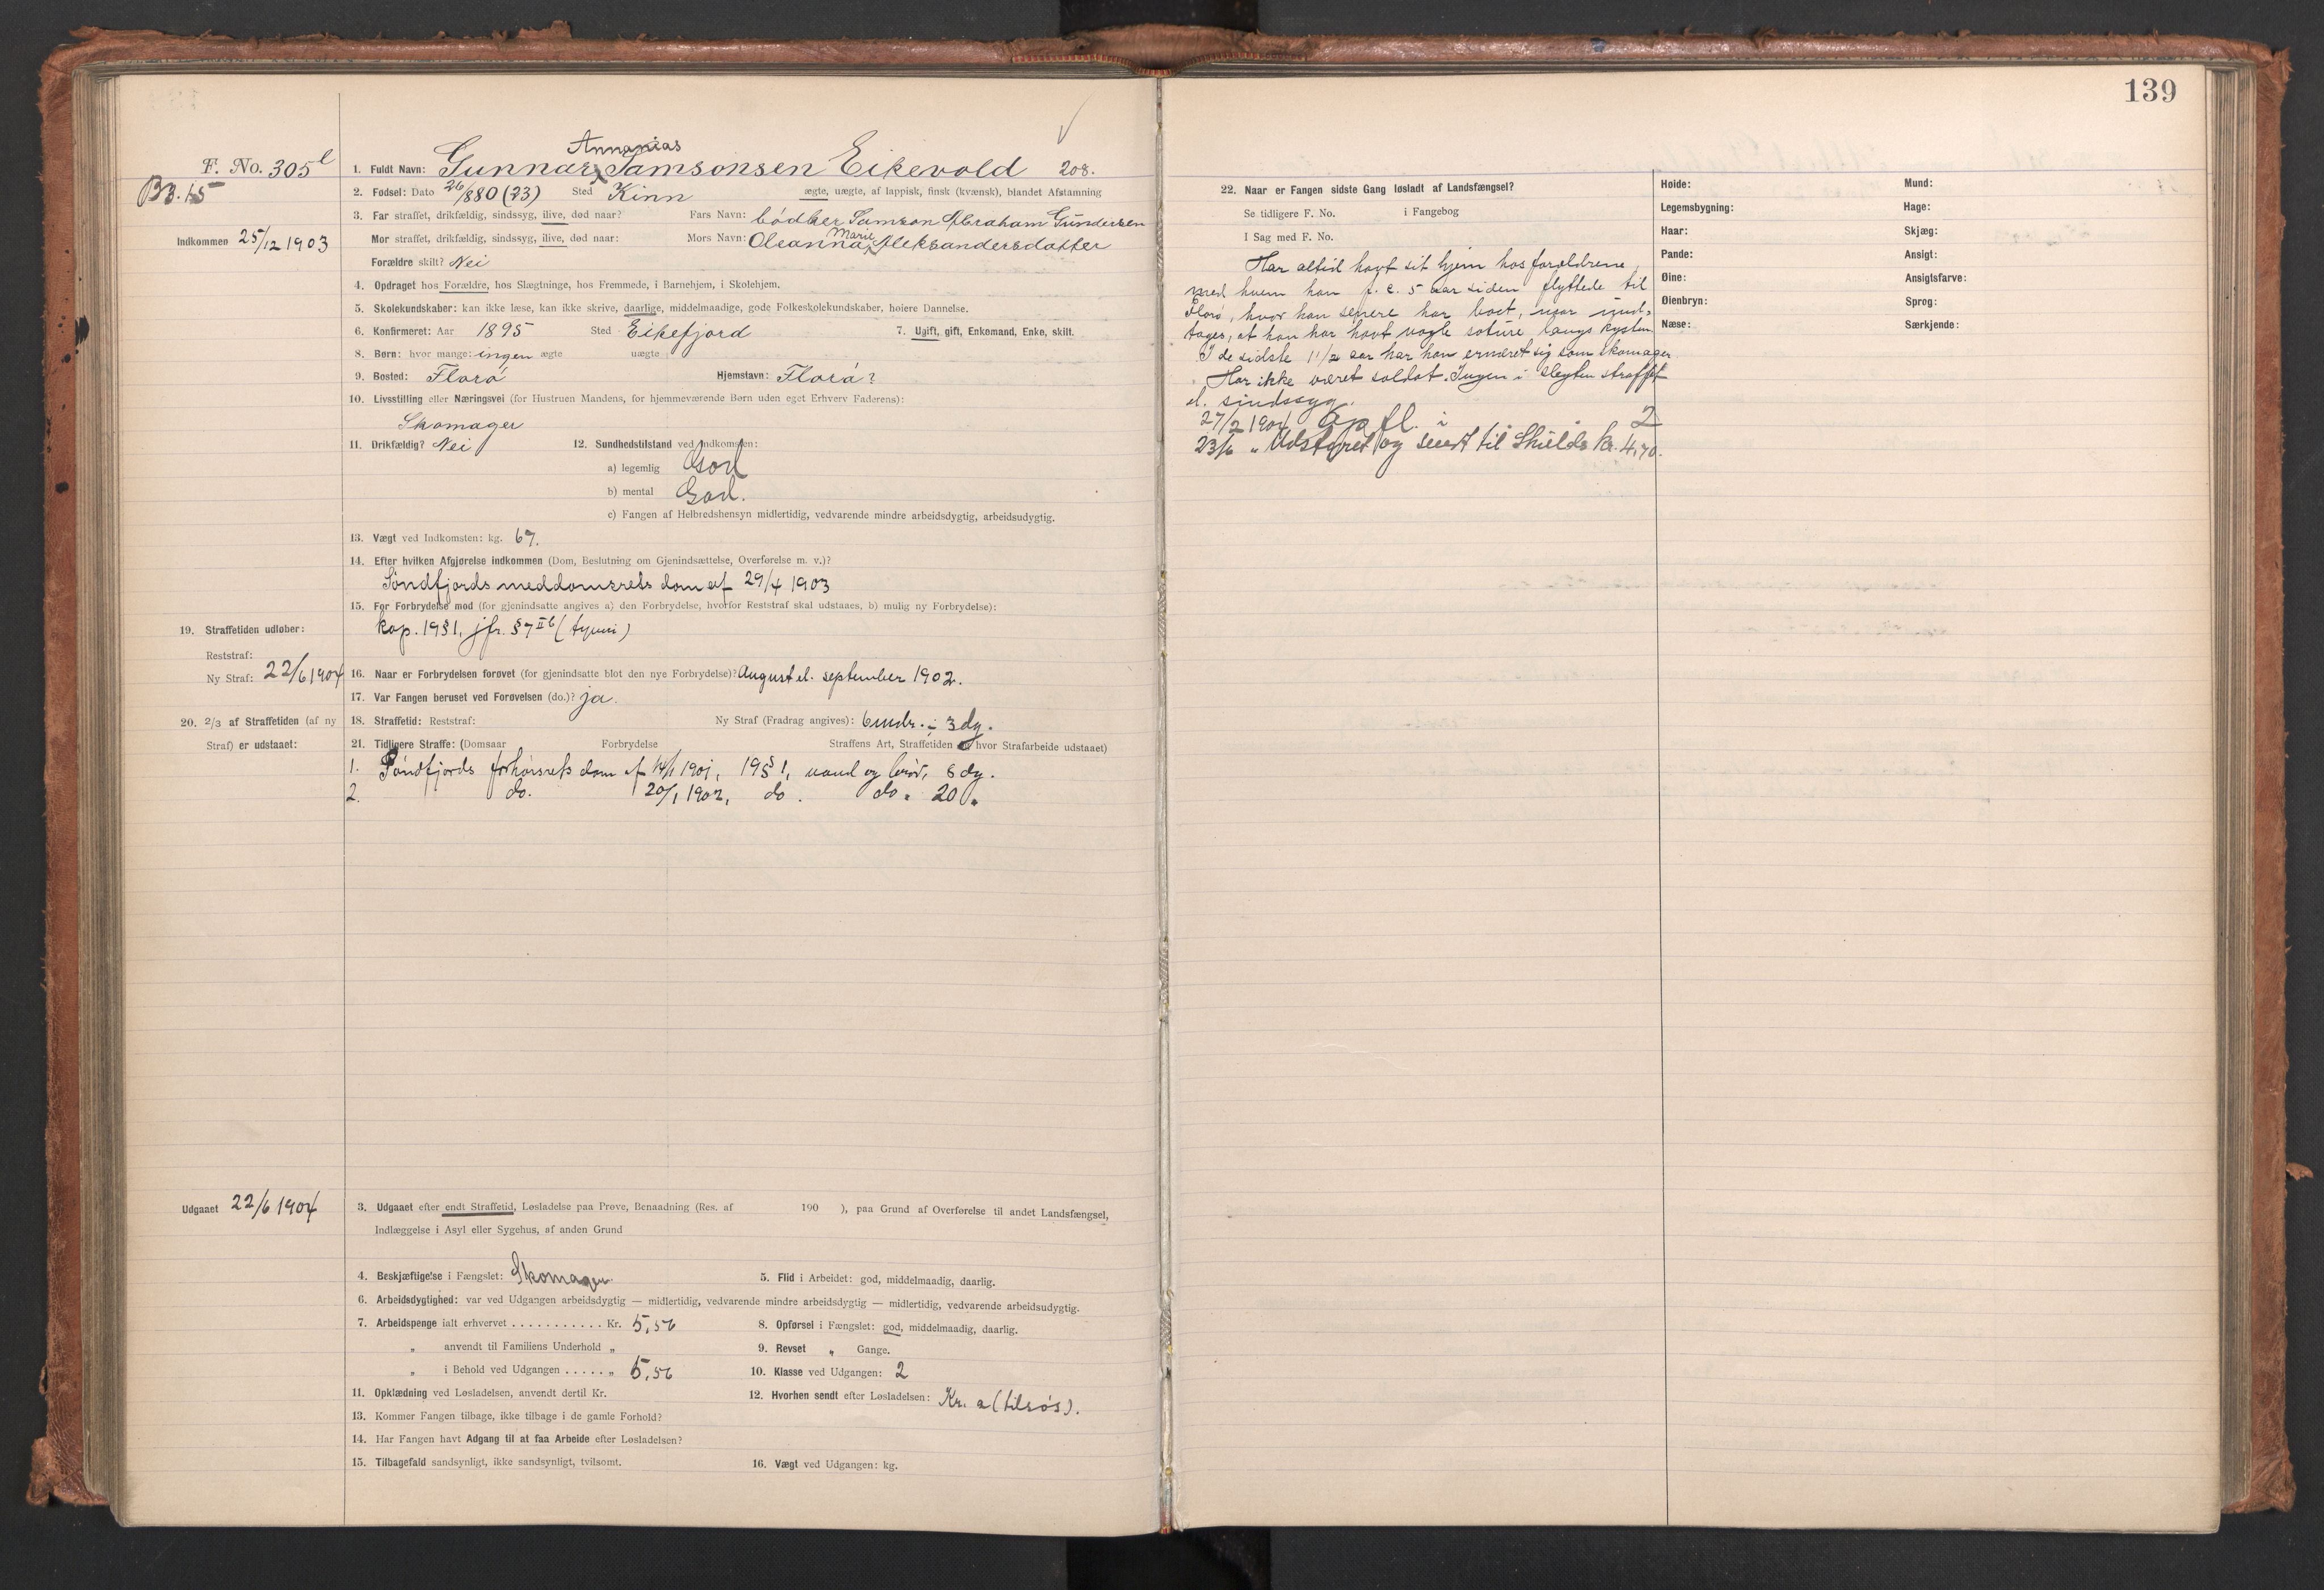 139
Annanias
F. No. 305 l
1. Fuldt Navn: Gunnar Samsonsen Eikevold 208.
B3. 15
2. Fødsel: Dato 26/ 880 (23) Sted Kinn ægte, uægte, af lappisk, finsk (kvænsk), blandet Afstamning
3. Far straffet, drikfældig, sindssyg, ilive, død naar? Fars Navn: bødker Samson Abraham Gundersen
Indkommen 25/12 1903
Marie
Mor straffet, drikfældig, sindssyg, ilive, død naar: Mors Navn: Oleanna Aleksandersdatter
Forældre skilt? Nei
4. Opdraget hos Forældre, hos Slægtninge, hos Fremmede, i Barnehjem, i Skolehjem.
5. Skolekundskaber: kan ikke læse, kan ikke skrive, daarlige, middelmaadige, gode Folkeskolekundskaber, høiere Dannelse.
6. Konfirmeret: Aar 1895 Sted Eikefjord 7. Ugift, gift, Enkemand, Enke, skilt.
8. Børn: hvor mange: ingen ægte uægte
9. Bosted: Florø Hjemstavn: Florø?
10. Livsstilling eller Næringsvei (for Hustruen Mandens, for hjemmeværende Børn uden eget Erhverv Faderens):
Skomager
11. Drikfældig? Nei 12. Sundhedstilstand ved Indkomsten:
a) legemlig God
b) mental God.
c) Fangen af Helbredshensyn midlertidig, vedvarende mindre arbeidsdygtig, arbeidsudygtig.
13. Vægt ved Indkomsten: kg. 67.
14. Efter hvilken Afgjørelse indkommen (Dom, Beslutning om Gjenindsættelse, Overførelse m. v.)?
Søndfjords meddomsrets dom af 29/4 1903
15. For Forbrydelse mod (for gjenindsatte angives a) den Forbrydelse, hvorfor Reststraf skal udstaaes, b) mulig ny Forbrydelse):
kap. 19 § 1, jfr. § 7 II b (tyveri)
19. Straffetiden udløber:
Reststraf:
Ny Straf: 22/6 1904
16. Naar er Forbrydelsen forøvet (for gjenindsatte blot den nye Forbrydelse)? August el. september 1902.
17. Var Fangen beruset ved Forøvelsen (do.)? ja.
20. 2/3 af Straffetiden (af ny
Straf) er udstaaet:
18. Straffetid: Reststraf: Ny Straf (Fradrag angives): 6 mdr. ÷ 3 dg.
21. Tidligere Straffe: (Domsaar Forbrydelse Straffens Art, Straffetiden hvor Strafarbeide udstaaet)
1. Søndfjords forhørsrets dom af 14/1 1901, 19 § 1, vand og brød, 6 dg.
2. do. 20/1 1902, do. do " 20 "
Udgaaet 22/6 1904
3. Udgaaet efter endt Straffetid, Løsladelse paa Prøve, Benaadning (Res. af 190 ), paa Grund af Overførelse til andet Landsfængsel,
Indlæggelse i Asyl eller Sygehus, af anden Grund
4. Beskjæftigelse i Fængslet: Skomager 5. Flid i Arbeidet: god, middelmaadig, daarlig.
6. Arbeidsdygtighed: var ved Udgangen arbeidsdygtig — midlertidig, vedvarende mindre arbeidsdygtig — midlertidig, vedvarende arbeidsudygtig.
7. Arbeidspenge ialt erhvervet . . . . . . . . . . . Kr. 5,56 8. Opførsel i Fængslet: god, middelmaadig, daarlig.
„ anvendt til Familiens Underhold „ 9. Revset „ Gange.
„ i Behold ved Udgangen . . . . . „ 5,56 10. Klasse ved Udgangen: 2
11. Opklædning ved Løsladelsen, anvendt dertil Kr. 12. Hvorhen sendt efter Løsladelsen: Kr. a (tilsøs).
13. Kommer Fangen tilbage, ikke tilbage i de gamle Forhold?
14. Har Fangen havt Adgang til at faa Arbeide efter Løsladelsen?
15. Tilbagefald sandsynligt, ikke sandsynligt, tvilsomt. 16. Vægt ved Udgangen: kg.
22. Naar er Fangen sidste Gang løsladt af Landsfængsel?
Se tidligere F. No. i Fangebog
I Sag med F. No.
Har altid havt sit hjem hos forældrene,
med hvem han p. c. 5 aar siden flyttede til
Florø, hvor han senere har boet, naar und-
tages, at han har havt nogle voture langs kysten.
I de sidste 1 1/2 aar har han ernæret sig som skomager.
Har ikke været soldat. Ingen i slegten straffet
el. sindssyg.
27/2 1904 Op fl. i 2
23/6 „ Udstyret og sendt til Skulds kr. 4,70.
Høide: Mund:
Legemsbygning: Hage:
Haar: Skjæg:
Pande: Ansigt:
Øine: Ansigtsfarve:
Øienbryn: Sprog:
Næse: Særkjende: